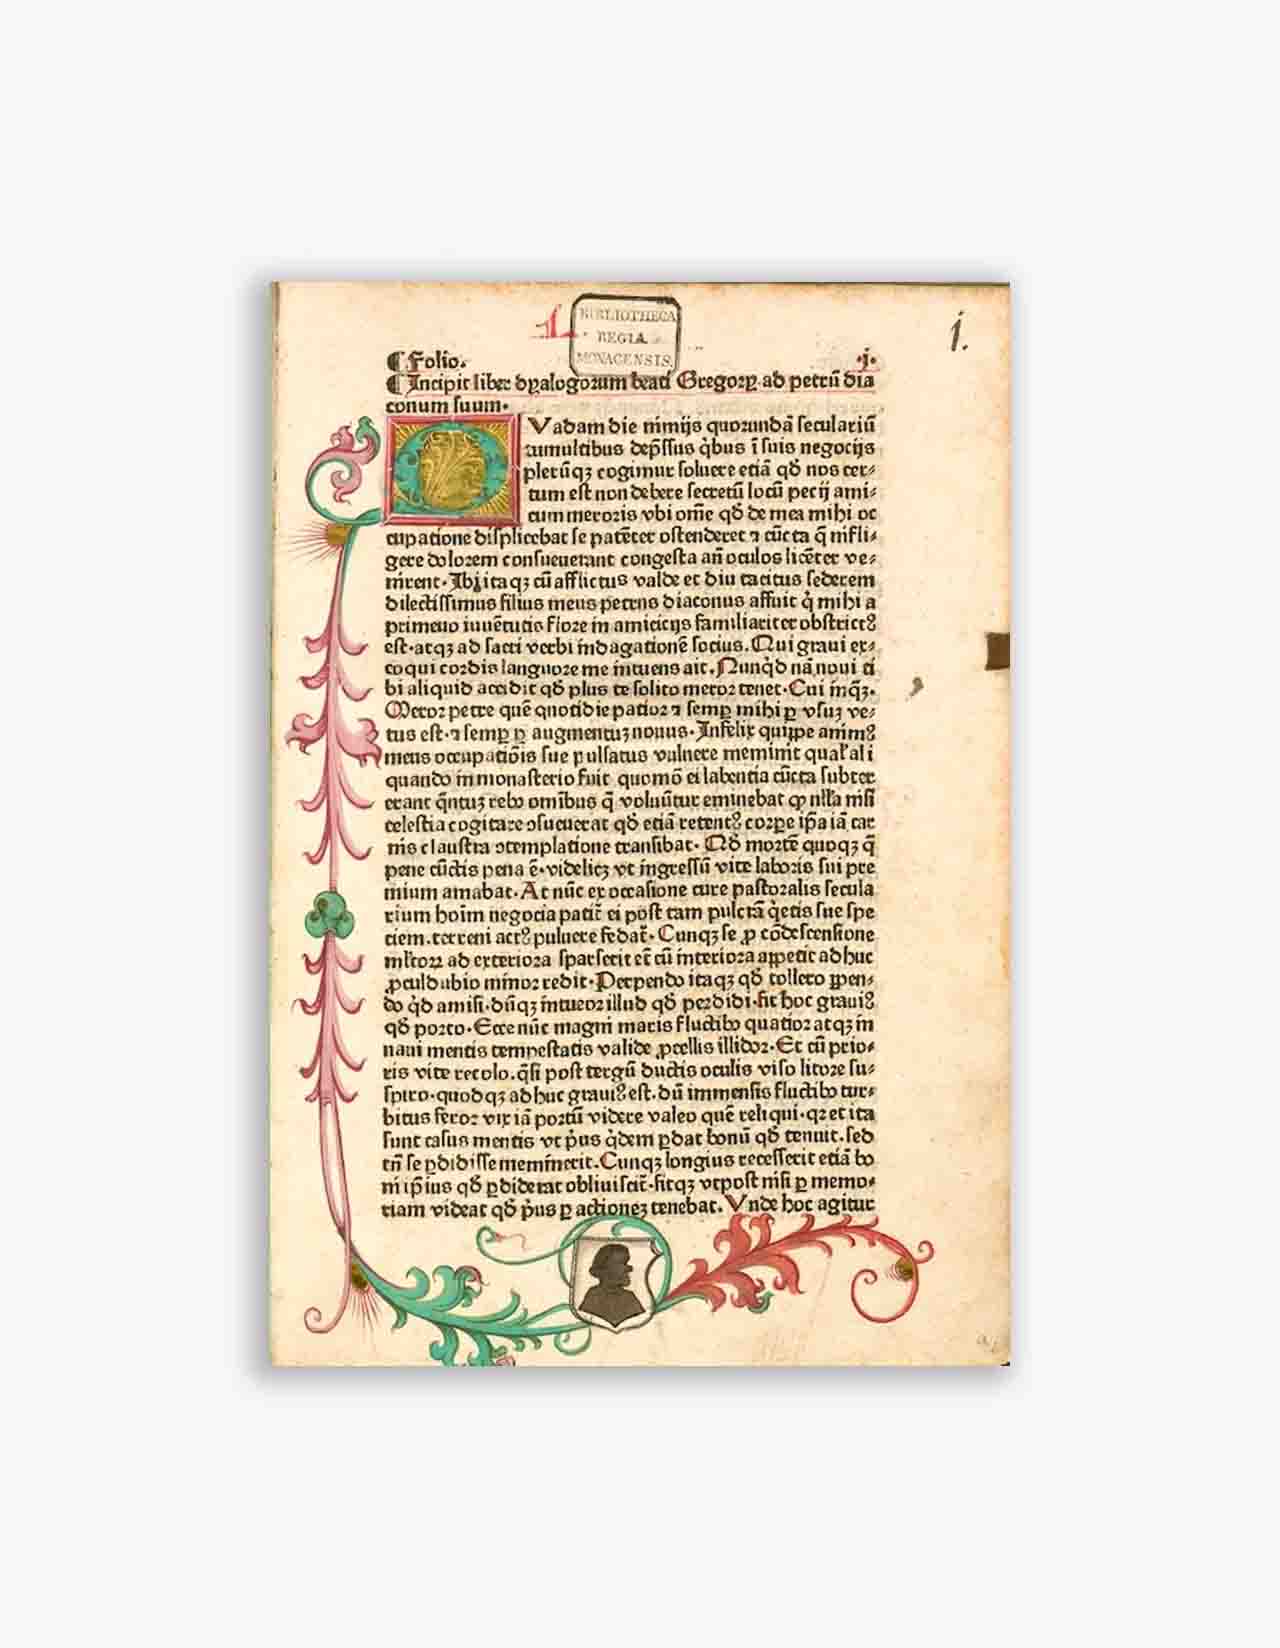 1
BIBLIOTHECA
REGIA
MONACENSIS.
i.
¶ Folio. .j.
¶ Incipit liber dyalogorum beati Gregorij ad petrū dia
conum suum.
Q Vadam die nimijs quorundā seculariū
tumultibus dep̄ssus q̇bus ī suis negocijs
plerūqꝫ cogimur soluere etiā qď nos cer⸗
tum est non debere secretū locū pecij ami⸗
cum meroris vbi om̄e qď de mea mihi oc
cupatione displicebat se patēter ostenderet ⁊ cūcta q̄ nifli⸗
gere dolorem consueuerant congesta añ oculos licēter ve⸗
nirent. Ibi itaqꝫ cū afflictus valde et diu tacitus sederem
dilectissimus filius meus petrus diaconus affuit q̇ mihi a
primeuo iuuētutis flore in amicicijs familiariter obstrictꝰ
est. atqꝫ ad sacri verbi indagationē socius. Qui graui ex⸗
coqui cordis languore me intuens ait. Nunq̇d nā noui ti
bi aliquid accidit qď plus te solito meror tenet. Cui inqꝫ.
Meror petre quē quotidie patior ⁊ semꝑ mihi ꝑ vsuꝫ ve⸗
tus est. ⁊ semꝑ ꝑ augmentuꝫ nouus. Infelix quippe animꝰ
meus occupatiōis sue pulsatus vulnere meminit qualʼ ali
quando in monasterio fuit quomō ei labentia cūcta subter
erant q̄ntuꝫ rebꝰ omībus q̄ voluūtur eminebat ꝙ nlla nisi
celestia cogitare ↄsueuerat qď etiā retentꝰ corꝑe ip̄a iā car
nis claustra ↄtemplatione transibat. Qď mortē quoqꝫ q̄
pene cūctis pena ē. videlicꝫ vt ingressū vite laboris sui pre
mium amabat. At nūc ex occasione cure pastoralis secula
rium hoīm negocia patit̄ ei post tam pulcrā q̇etis sue spe
ciem. terreni actꝰ puluere fedat̄. Cunqꝫ se ꝓ cōdescensione
mltoꝝ ad exteriora sparserit et̄ cū interiora appetit adhuc
ꝓculdubio minor redit. Perpendo itaqꝫ qď tollero ꝑpen⸗
do q̇d amisi. dūqꝫ intueor illud qď perdidi. fit hoc grauiꝰ
qď porto. Ecce nūc magni maris fluctibꝰ quatior atqꝫ in
naui mentis tempestatis valide ꝓcellis illidor. Et cū prio⸗
ris vite recolo. q̄si post tergū ductis oculis viso litore su⸗
spiro. quodqꝫ adhuc grauiꝰ est. dū immensis fluctibꝰ tur⸗
bitus feror vix iā portū videre valeo quē reliqui. qꝛ et ita
sunt casus mentis vt p̄us q̇dem ꝑdat bonū qď tenuit. sed
tn̄ se ꝑdidisse meminerit. Cunqꝫ longius recesserit etiā bo
ni ip̄ius qď ꝑdiderat obliuiscit̄. fitqꝫ vt post nisi ꝑ memo⸗
riam videat qď p̄us ꝑ actioneꝫ tenebat. Vnde hoc agitur